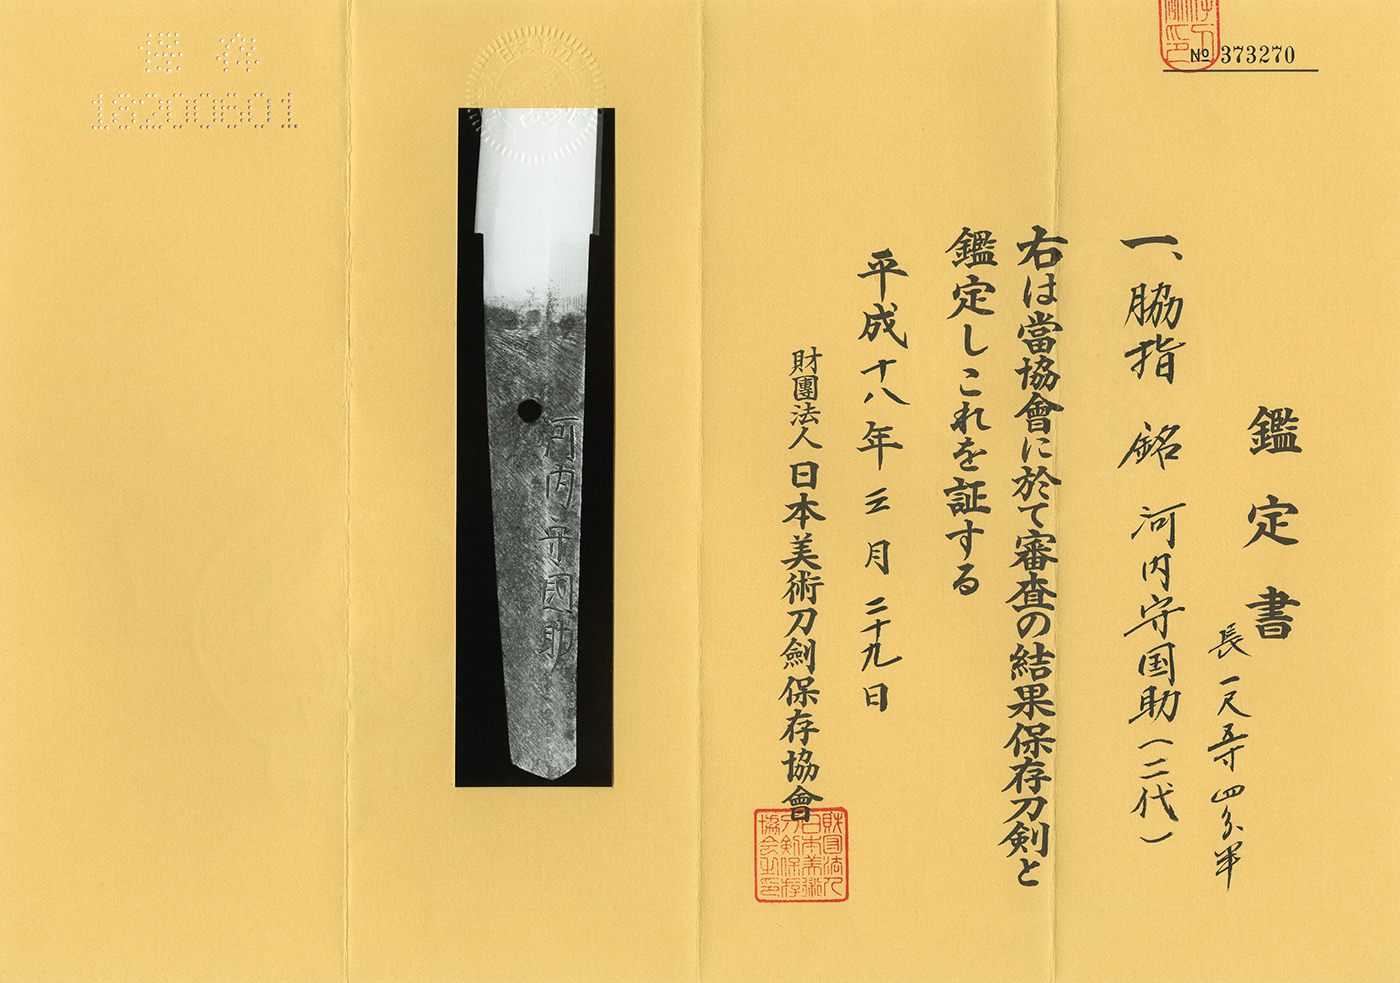 № 373270
鑑定書
一、脇指 銘 河内守国助(二代)
長 一尺五寸四分半
右は當協會に於て審査の結果保存刀剣と
鑑定しこれを証する
平成十八年三月二十九日
財團法人日本美術刀劍保存協會
財団法人
日本美術
刀剣保存
協会之印
河内守國助
保存
18200601